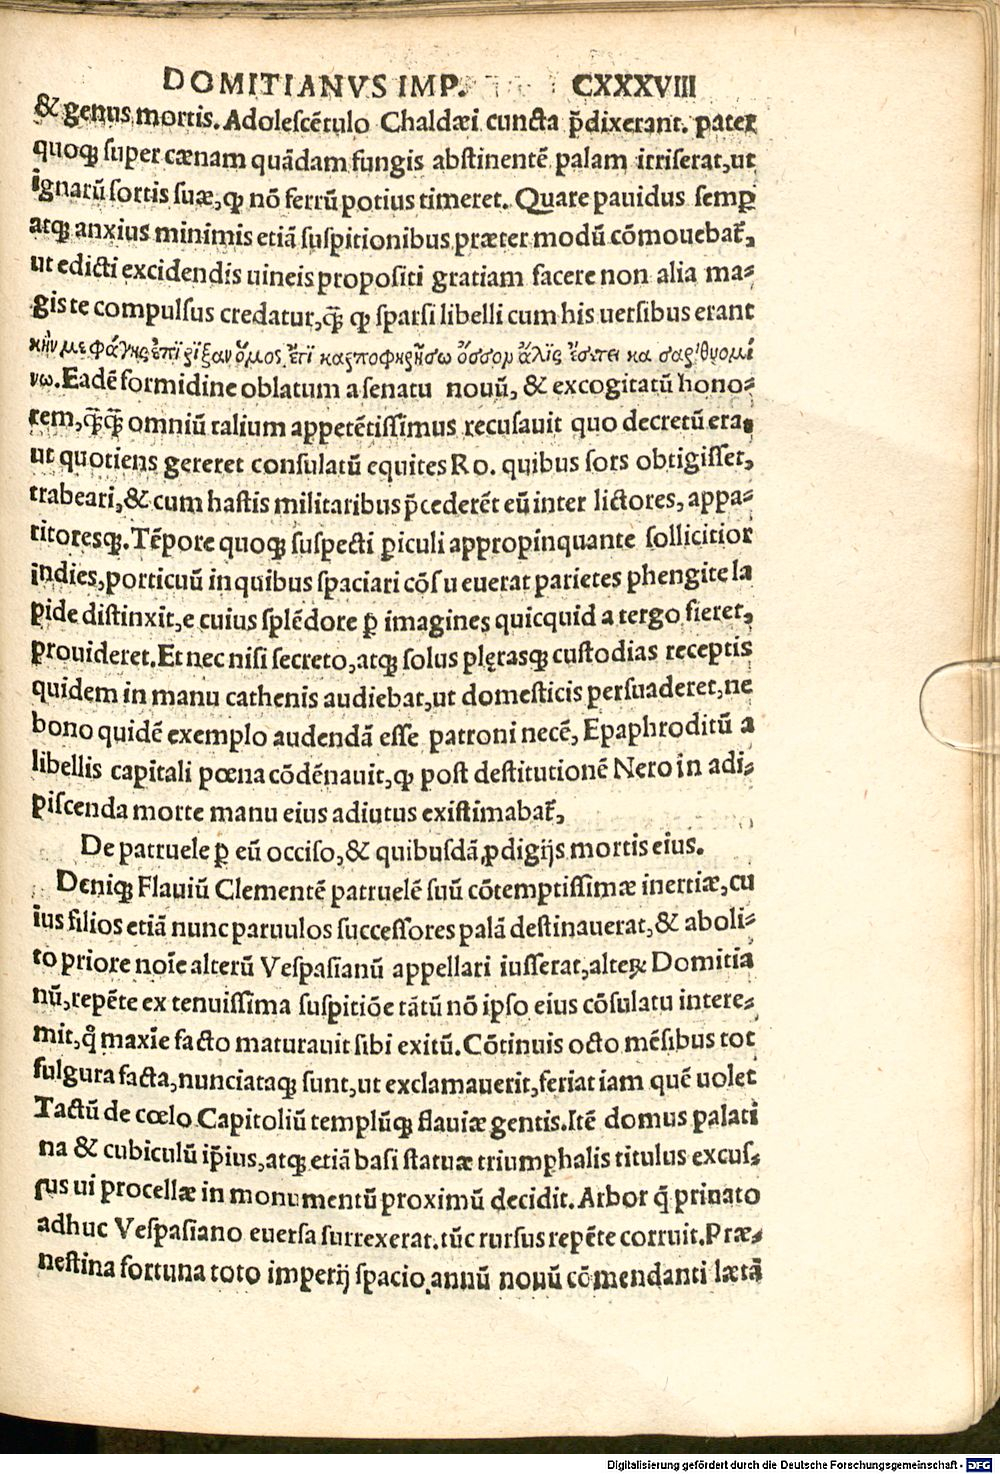 DOMITIANVS IMP. CXXXVIII
& genus mortis. Adolescētulo Chaldæi cuncta p̄dixerant. pater
quoq; super cænam quādam fungis abstinentē palam irriserat,ut
ignarū sortis suæ,ꝙ nō ferrū potius timeret. Quare pauidus semꝑ
atq; anxius minimis etiā suspitionibus præter modū cōmouebat᷑,
ut edicti excidendis uineis propositi gratiam facere non alia ma⸗
gis te compulsus credatur,q̄̃ ꝙ sparsi libelli cum his uersibus erant
κἠν με φάγης ἐπὶ ρίξαν ὅμος ἔτι καρποφηρήσω ὅσσομ ἅλις ἔσπει κα σαρ'θυομέ
νω. Eadē formidine oblatum a senatu nouū, & excogitatū hono⸗
rem,q̄̃q̄̃ omniū talium appetētissimus recusauit quo decretū era,
ut quotiens gereret consulatū equites Ro. quibus sors obtigisset,
trabeari,& cum hastis militaribus p̄cederēt eū inter lictores, appa⸗
ritoresq;. Tēpore quoq; suspecti ꝑiculi appropinquante sollicitior
indies,porticuū in quibus spaciari cōsueuerat parietes phengite la
pide distinxit,e cuius splēdore ꝑ imagines quicquid a tergo fieret,
prouideret. Et nec nisi secreto,atq; solus plęrasq; custodias receptis
quidem in manu cathenis audiebat,ut domesticis persuaderet,ne
bono quidē exemplo audendā esse patroni necē, Epaphroditū a
libellis capitali pœna cōdēnauit,ꝙ post destitutionē Nero in adi⸗
piscenda morte manu eius adiutus existimabat᷑,
De patruele ꝑ eū occiso,& quibusdā ꝓdigijs mortis eius.
Deniq; Flauiū Clementē patruelē suū cōtemptissimæ inertiæ,cu
ius filios etiā nunc paruulos successores palā destinauerat,& aboli⸗
to priore noīe alterū Vespasianū appellari iusserat,alteꝝ Domitia
nū,repēte ex tenuissima suspitiōe tātū nō ipso eius cōsulatu intere⸗
mit,qͦ maxīe facto maturauit sibi exitū. Cōtinuis octo mēsibus tot
fulgura facta,nunciataq; sunt,ut exclamauerit,feriat iam quē uolet
Tactū de cœlo Capitoliū templūq; flauiæ gentis. Itē domus palati
na & cubiculū ip̄ius,atq; etiā basi statuæ triumphalis titulus excus⸗
sus ui procellæ in monumentū proximū decidit. Arbor q̄ priuato
adhuc Vespasiano euersa surrexerat. tūc rursus repēte corruit. Præ⸗
nestina fortuna toto imperij spacio annū nouū cōmendanti lætā
Digitalisierung gefördert durch die Deutsche Forschungsgemeinschaft - DFG